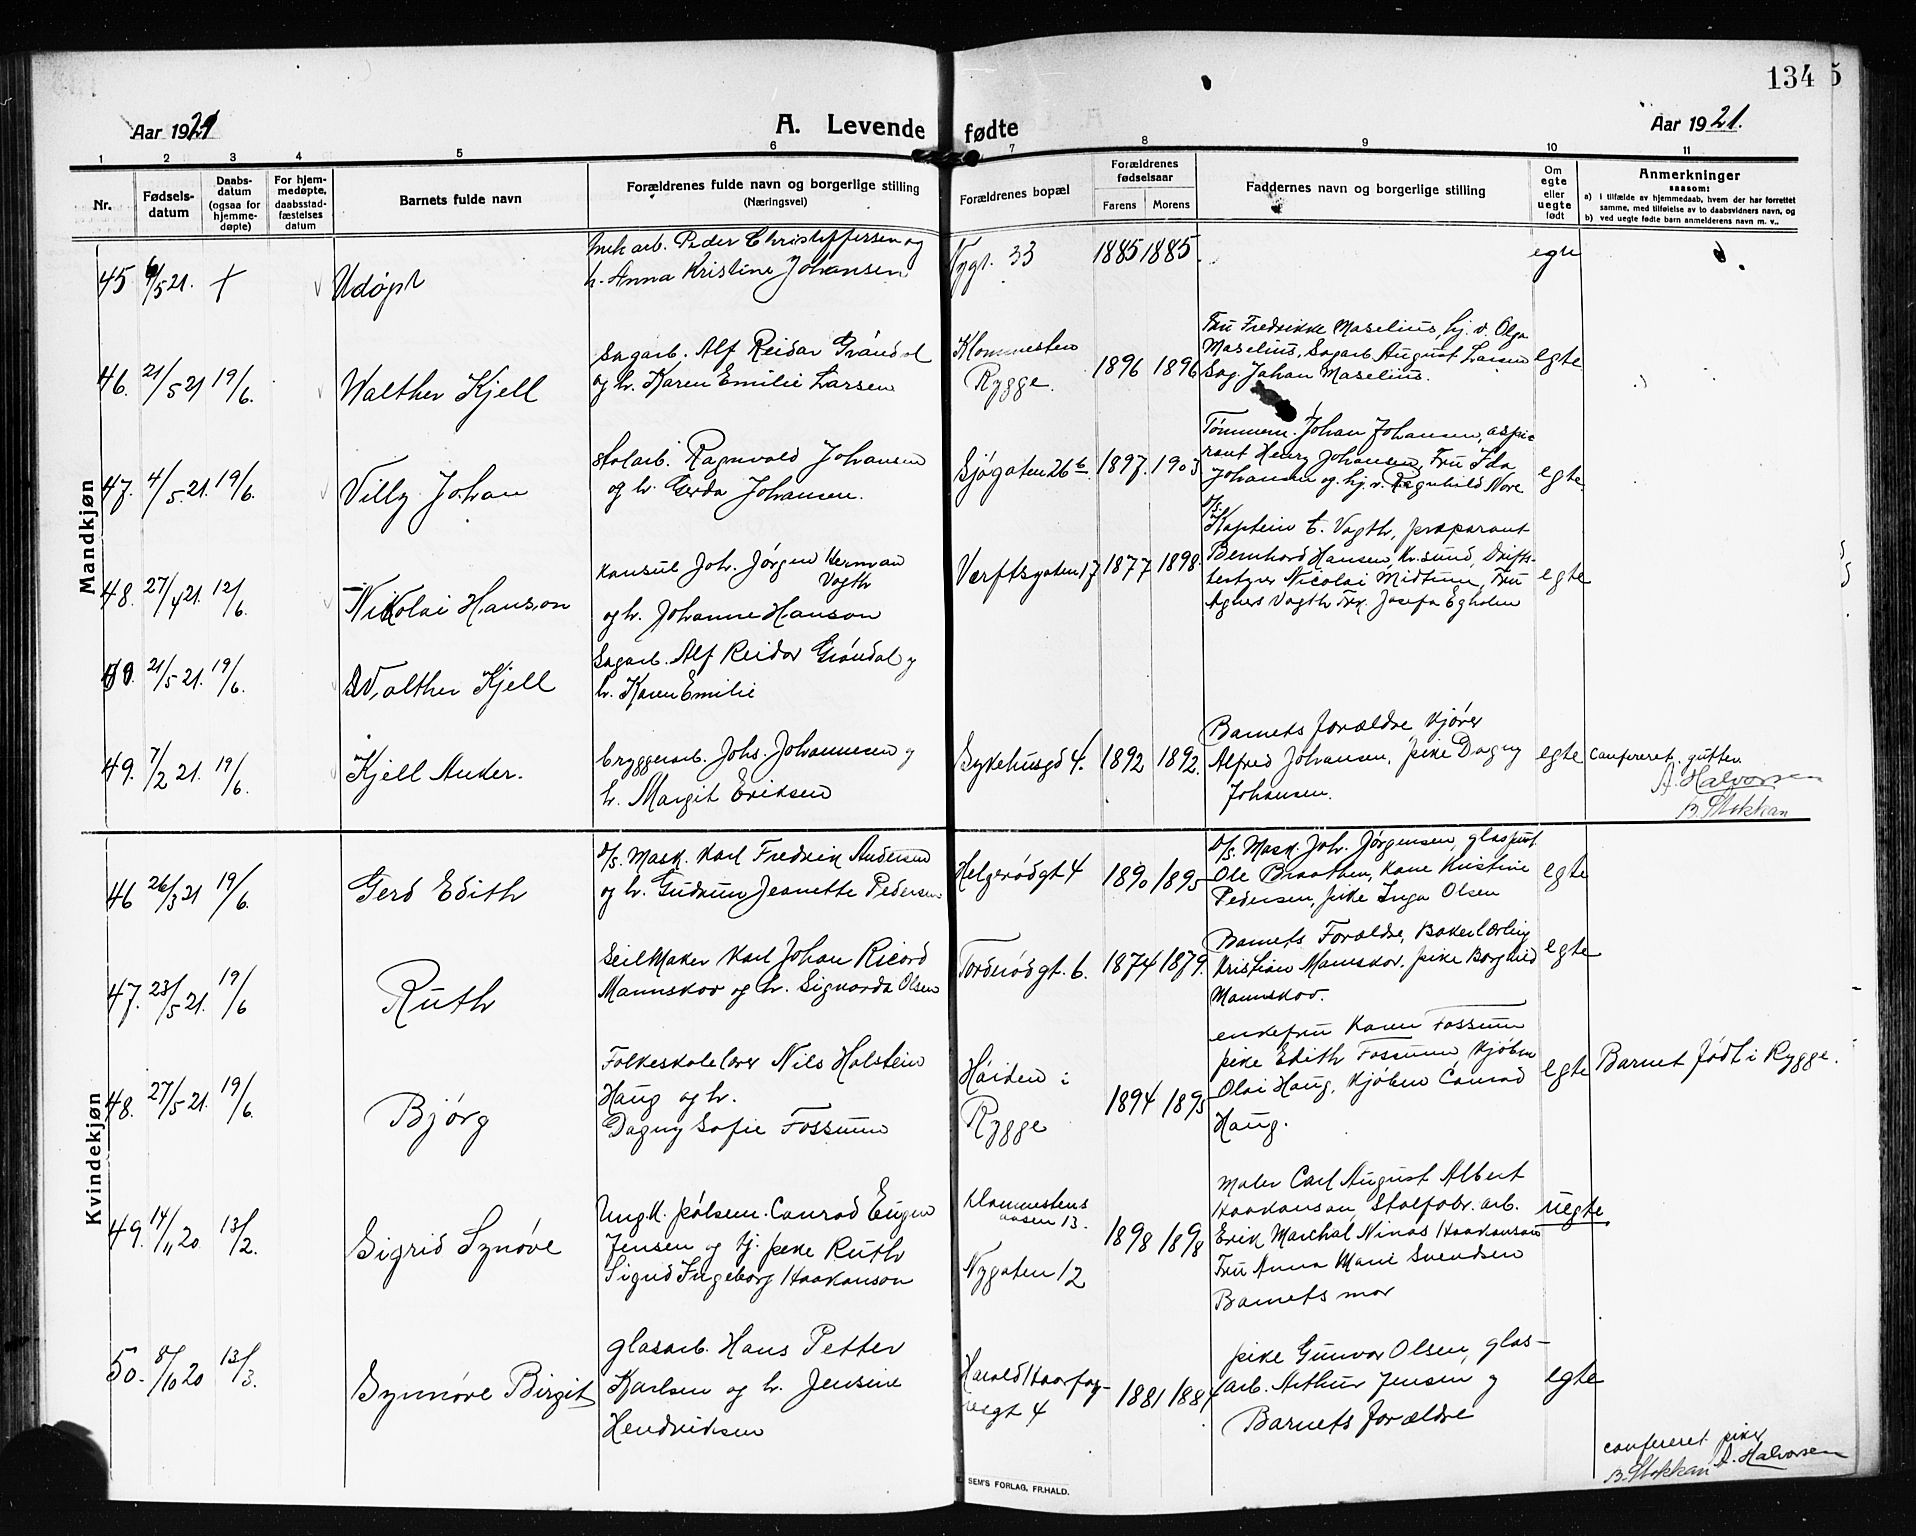 134 5
Aar 1921
A. Levende fødte
Aar 1921.
1 2 3 4 5 6 7 8 9 10 11
Nr.
Fødsels-
datum
Daabs-
datum
(ogsaa for
hjemme-
døpte)
For hjem-
medøpte,
daabsstad-
fæstelses
datum
Barnets fulde navn
Forældrenes fulde navn og borgerlige stilling
(Næringsvei)
Forældrenes bopæl
Forældrenes
fødselsaar
Farens Morens
Faddernes navn og borgerlige stilling
Om
egte
eller
uegte
født
Anmerkninger
saasom:
a) i tilfælde av hjemmedaab, hvem der har forrettet
samme, med tilføielse av to daabsvidners navn, og
b) ved uegte fødte barn anmelderens navn m. v..
Mandkjøn
45 6/5 21. + Udøpt
Peder Christoffersen og
h. Anna Kristine Johansen
Nygt. 33 1885 1885. egte
46. 21/5 21 19/6. Walther Kjell
Sagarb. Alf Reidar Gröndal
og h. Karen Emilie Larsen
Klommesten
Rygge. 1896 1896
Fru Fredrikke Maselius, hj. v. Olga
Maselius, Sagarb August Larsen
Sag. Johan Maselius.
egte
47. 4/5 21. 19/6. Villy Johan
Ragnvald Johansen
og h. Gerda Johansen.
Sjøgaten 26 b. 1897. 1903
Tømmerm. Johan Johansen, aspi-
rant Henry Johansen, Fru Ida
Johansen og hj. v. Ragnhild Nore
egte.
48. 27/4 21. 12/6. Nikolai Hanson
Konsul Joh. Jørgen Herman
Vogth
og h. Johanne Hanson
Værftsgaten 17 1877 1898.
Kaptein C. Vogth, præparant
Bernhard Hansen, Kr.sund, Drifts-
bestyrer Nicolai Midttun, Fru
Agnes Vogth Frk. Josefa Egholm
egte
50. 21/5 21. 19/6. Walther Kjell
Sagarb. Alf Reidar Gröndal og
h. Karen Emilie
49. 7/2 21. 19/6. Kjell Anker.
bryggerarb. Johs. Johannesen og
h. Margit Eriksen
Sykehusgd 4. 1892 1892.
Barnets forældre, kjører
Alfred Johansen, pike Dagny
Johansen.
egte confereret gutter.
A. Halvorsen
B. Stokkan
Kvindekjøn
46 26/3 21 19/6. Gerd Edith
d/s. Mask. Karl Fredrik Andersen
og h. Gudrun Jeanette Pedersen
Helgerødgt 4 1890 1895
d/s. Mask. Joh. Jørgensen, glaspust
Ole Braathen, Kone Kristine
Pedersen, pike Inga Olsen
egte
47. 23/5 21. 19/6 Ruth
Seilmaker Karl Johan Ricard
Mannskov og h. Sigvarda Olsen
Tordrødgt. 6. 1874 1879.
Barnets Forældre, Bakerlærling
Kristian Mannskov, pike Borghild
Mannskov.
egte
48. 27/5 21. 19/6. Bjørg
Folkeskolelærer Nils Holstein
Haug og h.
Dagny Sofie Fossum
Höiden i
Rygge 1894 1895
enkefru Karen Fossum
pike Edith Fossum Kjöbm
Olai Haug, Kjöbm Conrad
Haug.
egte Barnet født i Rygge.
49. 14/11 20 13/2. Sigrid Synøve
Ung.k. pölsem. Conrad Eugen
Jensen og hj. pike Ruth
Sigrid Ingeborg Haakanson
Klommestens
aasen 13.
Nygaten 12
1898 1898
Maler Carl August Albert
Haakanson, Stolfabr. arb.
Erik Marchal Ninas Haakanson
Fru Anna Marie Svendsen
Barnets mor
uegte
50. 8/10 20 13/3. Synnøve Birgit
glasarb. Hans Petter
Karlsen og h. Jensine
Hendriksen
Harald Haarfag-
resgt 4 1881 1884
pike Gunvor Olsen, glas-
arb. Arthur Jensen og
Barnets forældre
egte
confereret piker
B. Stokkan A. Halvorsen
SEM'S FORLAG, FR.HALD.